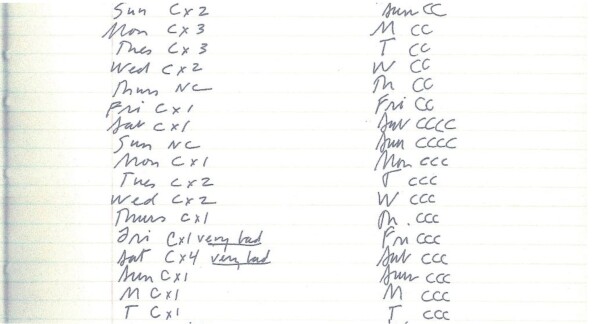 Sun Cx2
Mon Cx3
Tues Cx3
Wed Cx2
Thurs NC
Fri Cx1
Sat Cx1
Sun NC
Mon Cx1
Tues Cx2
Wed Cx2
Thurs Cx1
Fri Cx1 very bad
Sat Cx4 very bad
Sun Cx1
M Cx1
T Cx1
Sun CC
M CC
T CC
W CC
Th CC
Fri CC
Sat CCCC
Sun CCCC
Mon CCC
T CCC
W CCC
Th. CCC
Fri CCC
Sat CCC
Sun CCC
M CCC
T CCC